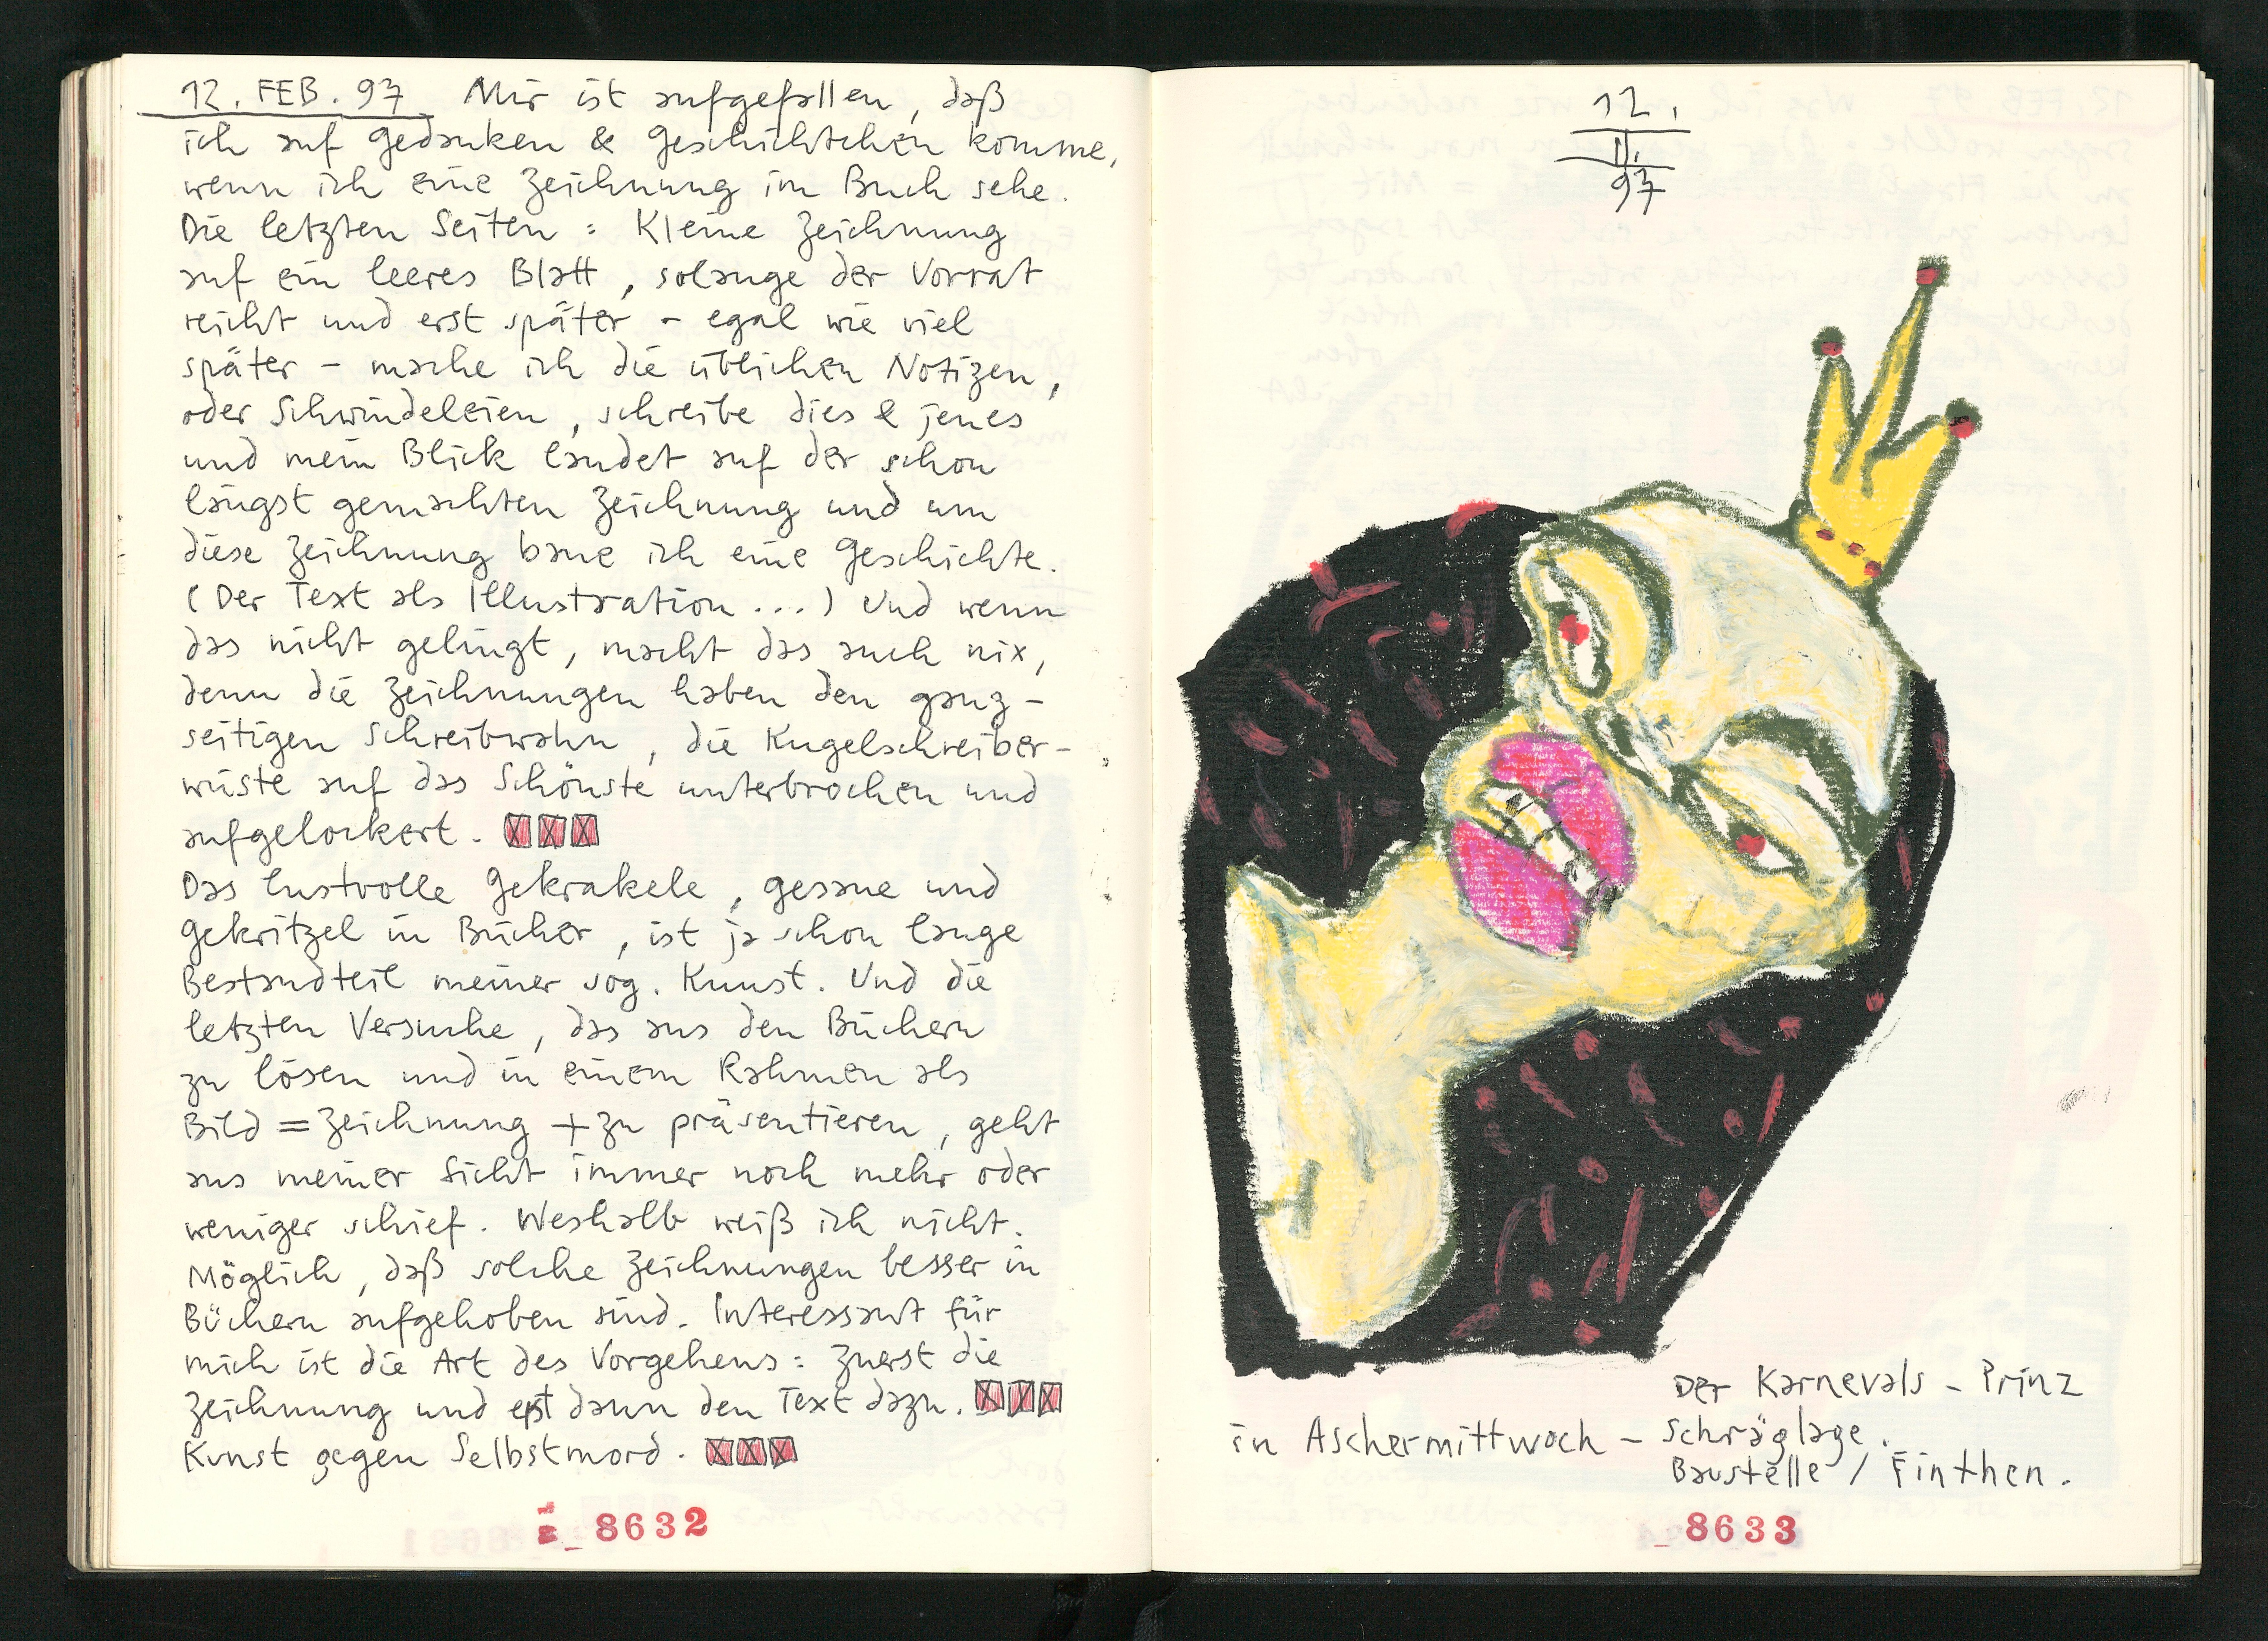 12. FEB. 97 Mir ist aufgefallen, daß
ich auf Gedanken & Geschichtchen komme,
wenn ich eine Zeichnung im Buch sehe.
Die letzten Seiten: Kleine Zeichnung
auf ein leeres Blatt, solange der Vorrat
reicht und erst später – egal wie viel
später – mache ich die üblichen Notizen,
oder Schwindeleien, schreibe dies & jenes
und mein Blick landet auf der schon
längst gemachten Zeichnung und um
diese Zeichnung baue ich eine Geschichte.
(Der Text als Illustration...) Und wenn
das nicht gelingt, macht das auch nix,
denn die Zeichnungen haben den ganz-
seitigen Schreibwahn, die Kugelschreiber-
wüste auf das Schönste unterbrochen und
aufgelockert.
Das lustvolle Gekrakele, gesaue und
Gekritzel in Bücher, ist ja schon lange
Bestandteil meiner sog. Kunst. Und die
letzten Versuche, das aus den Büchern
zu lösen und in einem Rahmen als
Bild = Zeichnung + zu präsentieren, geht
aus meiner Sicht immer noch mehr oder
weniger schief. Weshalb weiß ich nicht.
Möglich, daß solche Zeichnungen besser in
Büchern aufgehoben sind. Interessant für
mich ist die Art des Vorgehens: Zuerst die
Zeichnung und erst dann den Text dazu.
Kunst gegen Selbstmord.
8632
12.
II.
97
Der Karnevals – Prinz
in Aschermittwoch – Schräglage.
Baustelle / Finthen.
8633